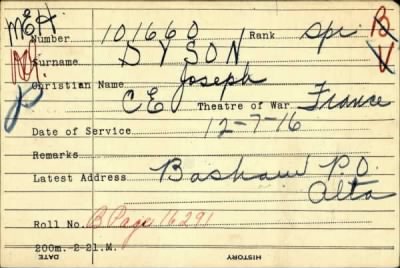 M.E.H.
Number 101660 Rank Spr. B
Surname DYSON V
Christian Name Joseph
CE Theatre of War France
Date of Service 12-7-16
Remarks
Latest Address Bashaw P.O.
Alta
Roll No. B Page 16291
200m.-2-21.M.
DATE HISTORY